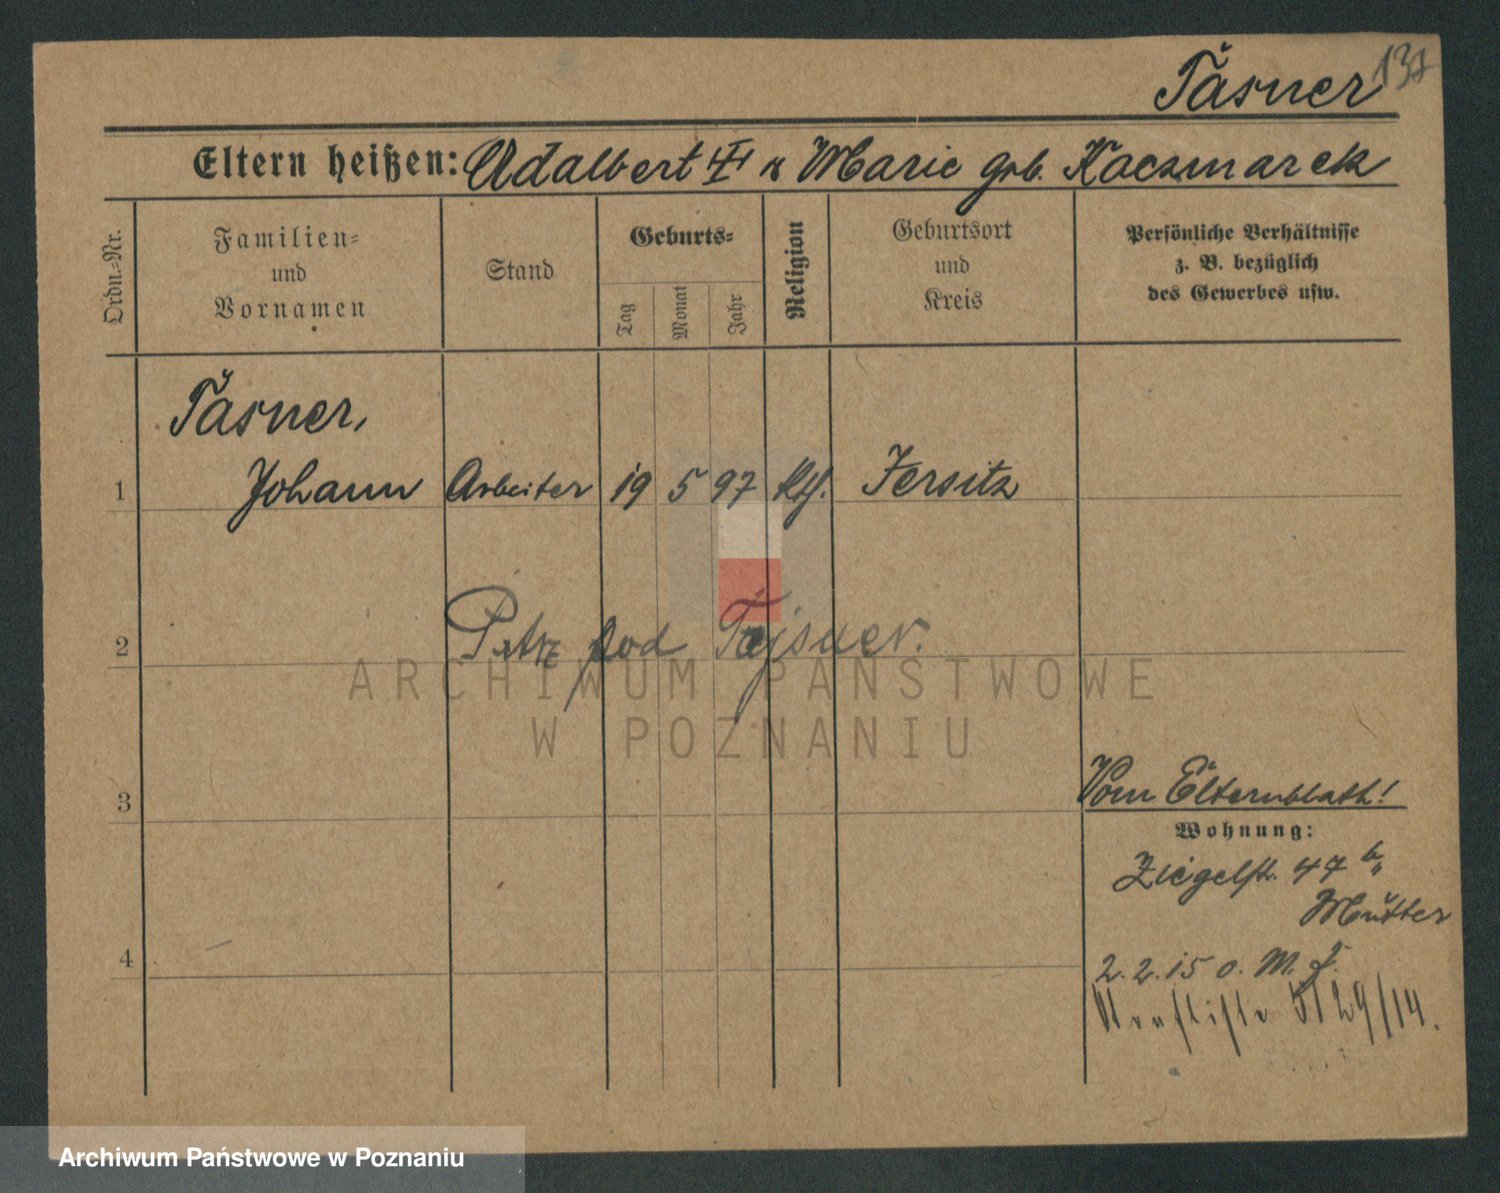 Tasner
137
Eltern heißen: Adalbert & Marie geb. Kaczmarek
Ordn.-Nr.
Familien- und Vornamen
Stand
Geburts-
Tag
Monat
Jahr
Religion
Geburtsort und Kreis
Persönliche Verhältnisse
z. B. bezüglich
des Gewerbes usw.
Tasner,
1 Johann Arbeiter 19 5 97 Kth. Jersitz
2 Patrz pod Tajsner.
ARCHIWUM PAŃSTWOWE
W POZNANIU
3
Vom Elternblatt!
Wohnung:
Ziegelstr. 47 b.
Mutter
4
2.2.15 o. M. J.
5129/14.
Archiwum Państwowe w Poznaniu